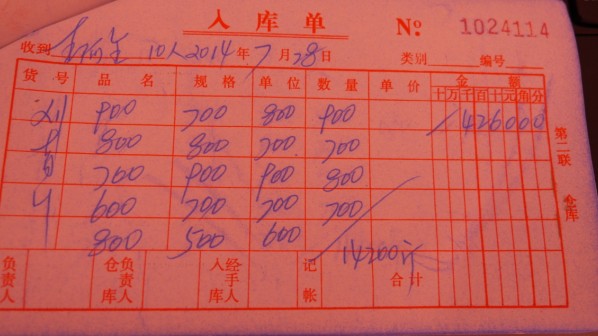 入库单 № 1024114
收到 10人2014年7月28日 类别 编号
货号 品名 规格 单位 数量 单价 金额
十万千百十元角分
900 700 800 900 426000
青 800 800 700 700
700 900 900 800
600 700 700 700
800 500 600
14200斤
负责人 仓库负责人 入库经手人 记帐 合计
第二联 仓库